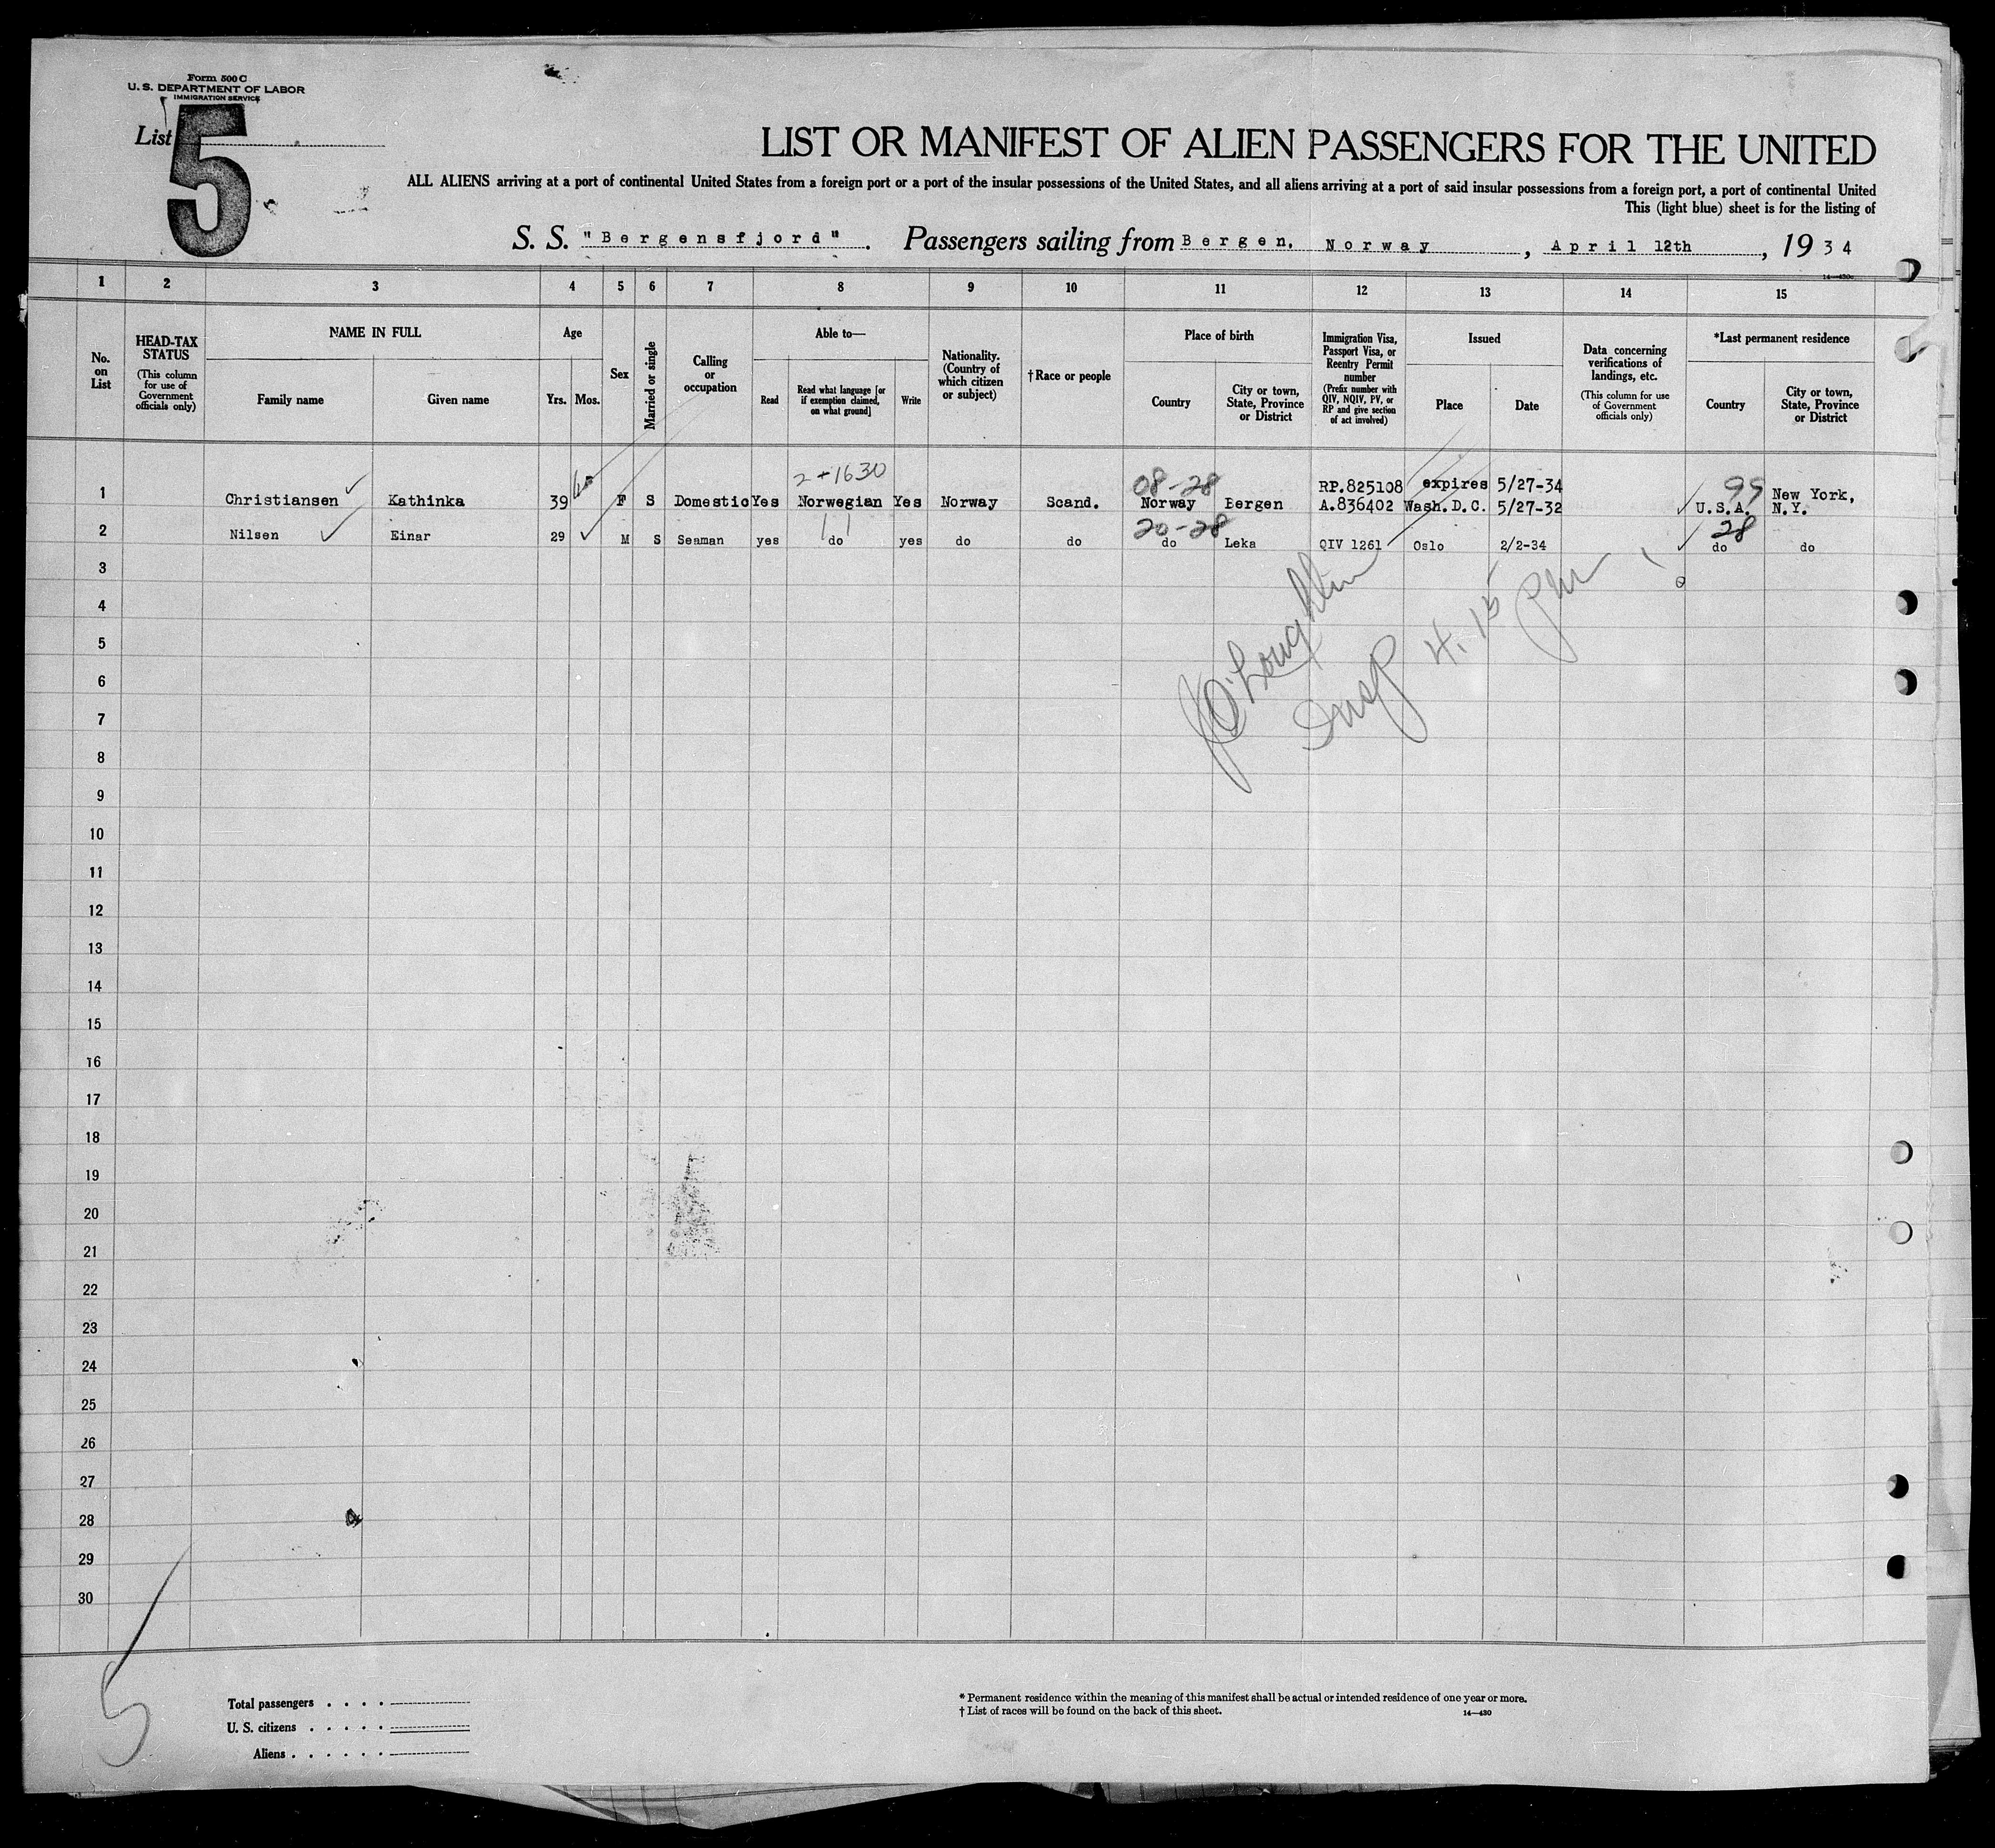 Form 500 C
U. S. DEPARTMENT OF LABOR
IMMIGRATION SERVICE
List 5
LIST OR MANIFEST OF ALIEN PASSENGERS FOR THE UNITED
ALL ALIENS arriving at a port of continental United States from a foreign port or a port of the insular possessions of the United States, and all aliens arriving at a port of said insular possessions from a foreign port, a port of continental United
This (light blue) sheet is for the listing of
S. S. "Bergensfjord". Passengers sailing from Bergen, Norway, April 12th, 1934
1 2 3 4 5 6 7 8 9 10 11 12 13 14 15
No. on List
HEAD-TAX STATUS
(This column for use of Government officials only)
NAME IN FULL
Family name
Given name
Age
Yrs. Mos.
Sex
Married or single
Calling or occupation
Able to—
Read
Read what language [or if exemption claimed, on what ground]
Write
Nationality. (Country of which citizen or subject)
†Race or people
Place of birth
Country
City or town, State, Province or District
Immigration Visa, Passport Visa, or Reentry Permit number
(Prefix number with QIV, NQIV, PV, or RP and give section of act involved)
Issued
Place
Date
Data concerning verifications of landings, etc.
(This column for use of Government officials only)
*Last permanent residence
Country
City or town, State, Province or District
2+1630 08-28 RP.825108 expires 5/27-34 99 New York,
1 Christiansen Kathinka 39 F S Domestic Yes Norwegian Yes Norway Scand. Norway Bergen A.836402 Wash.D.C. 5/27-32 U.S.A. N.Y.
20-28 28
2 Nilsen Einar 29 M S Seaman yes do yes do do do Leka QIV 1261 Oslo 2/2-34 do do
3
J O'Loughlin
4
Insp 4.15 pm
5
6
7
8
9
10
11
12
13
14
15
16
17
18
19
20
21
22
23
24
25
26
27
28
29
30
5
Total passengers . . . .
U. S. citizens . . . . .
Aliens . . . . . .
* Permanent residence within the meaning of this manifest shall be actual or intended residence of one year or more.
† List of races will be found on the back of this sheet.
14—430